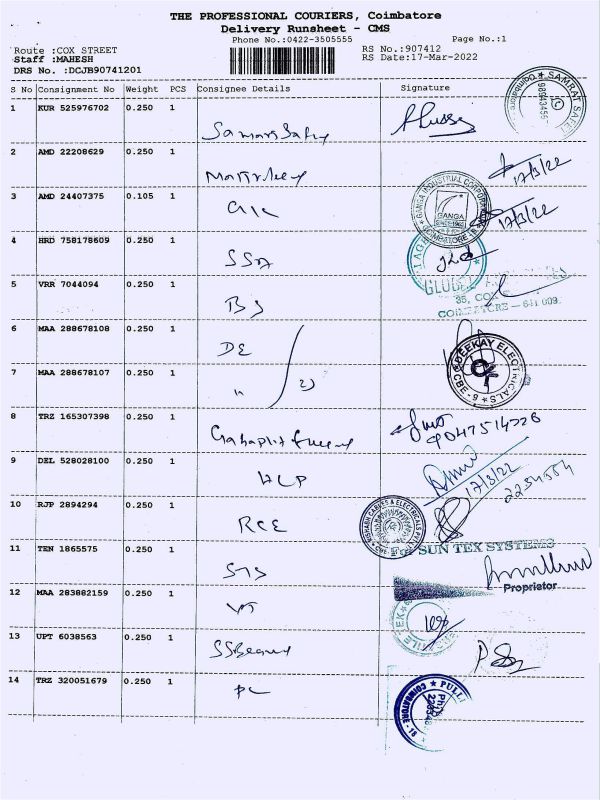 THE PROFESSIONAL COURIERS, Coimbatore
Delivery Runsheet - CMS
Phone No.:0422-3505555
Page No.:1
Route :COX STREET
RS No.:907412
Staff :MAHESH
RS Date:17-Mar-2022
DRS No. :DCJB90741201
S No Consignment No Weight PCS Consignee Details Signature
1 KUR 525976702 0.250 1
SAMRAT SAFETY
2 AMD 22208629 0.250 1
17/3/22
3 AMD 24407375 0.105 1 GIC
GANGA INDUSTRIAL CORPORATION
GANGA
SINCE 1962
COIMBATORE
17/3/22
4 HRD 758178609 0.250 1 SSA
5 VRR 7044094 0.250 1 BS
GLOBAL
COIMBATORE - 641 009.
6 MAA 288678108 0.250 1 DE
7 MAA 288678107 0.250 1 "
DEEKAY ELECTRICALS
CBE - 9
8 TRZ 165307398 0.250 1
9047514228
9 DEL 528028100 0.250 1 HLP
17/3/22
2234554
10 RJP 2894294 0.250 1 RCE
RISHABH CABLES & ELECTRICALS PVT
11 TEN 1865575 0.250 1 STS
For SUN TEX SYSTEMS
Proprietor
12 MAA 283882159 0.250 1 VT
13 UPT 6038563 0.250 1 SSBearing
14 TRZ 320051679 0.250 1 PC
COIMBATORE - 18